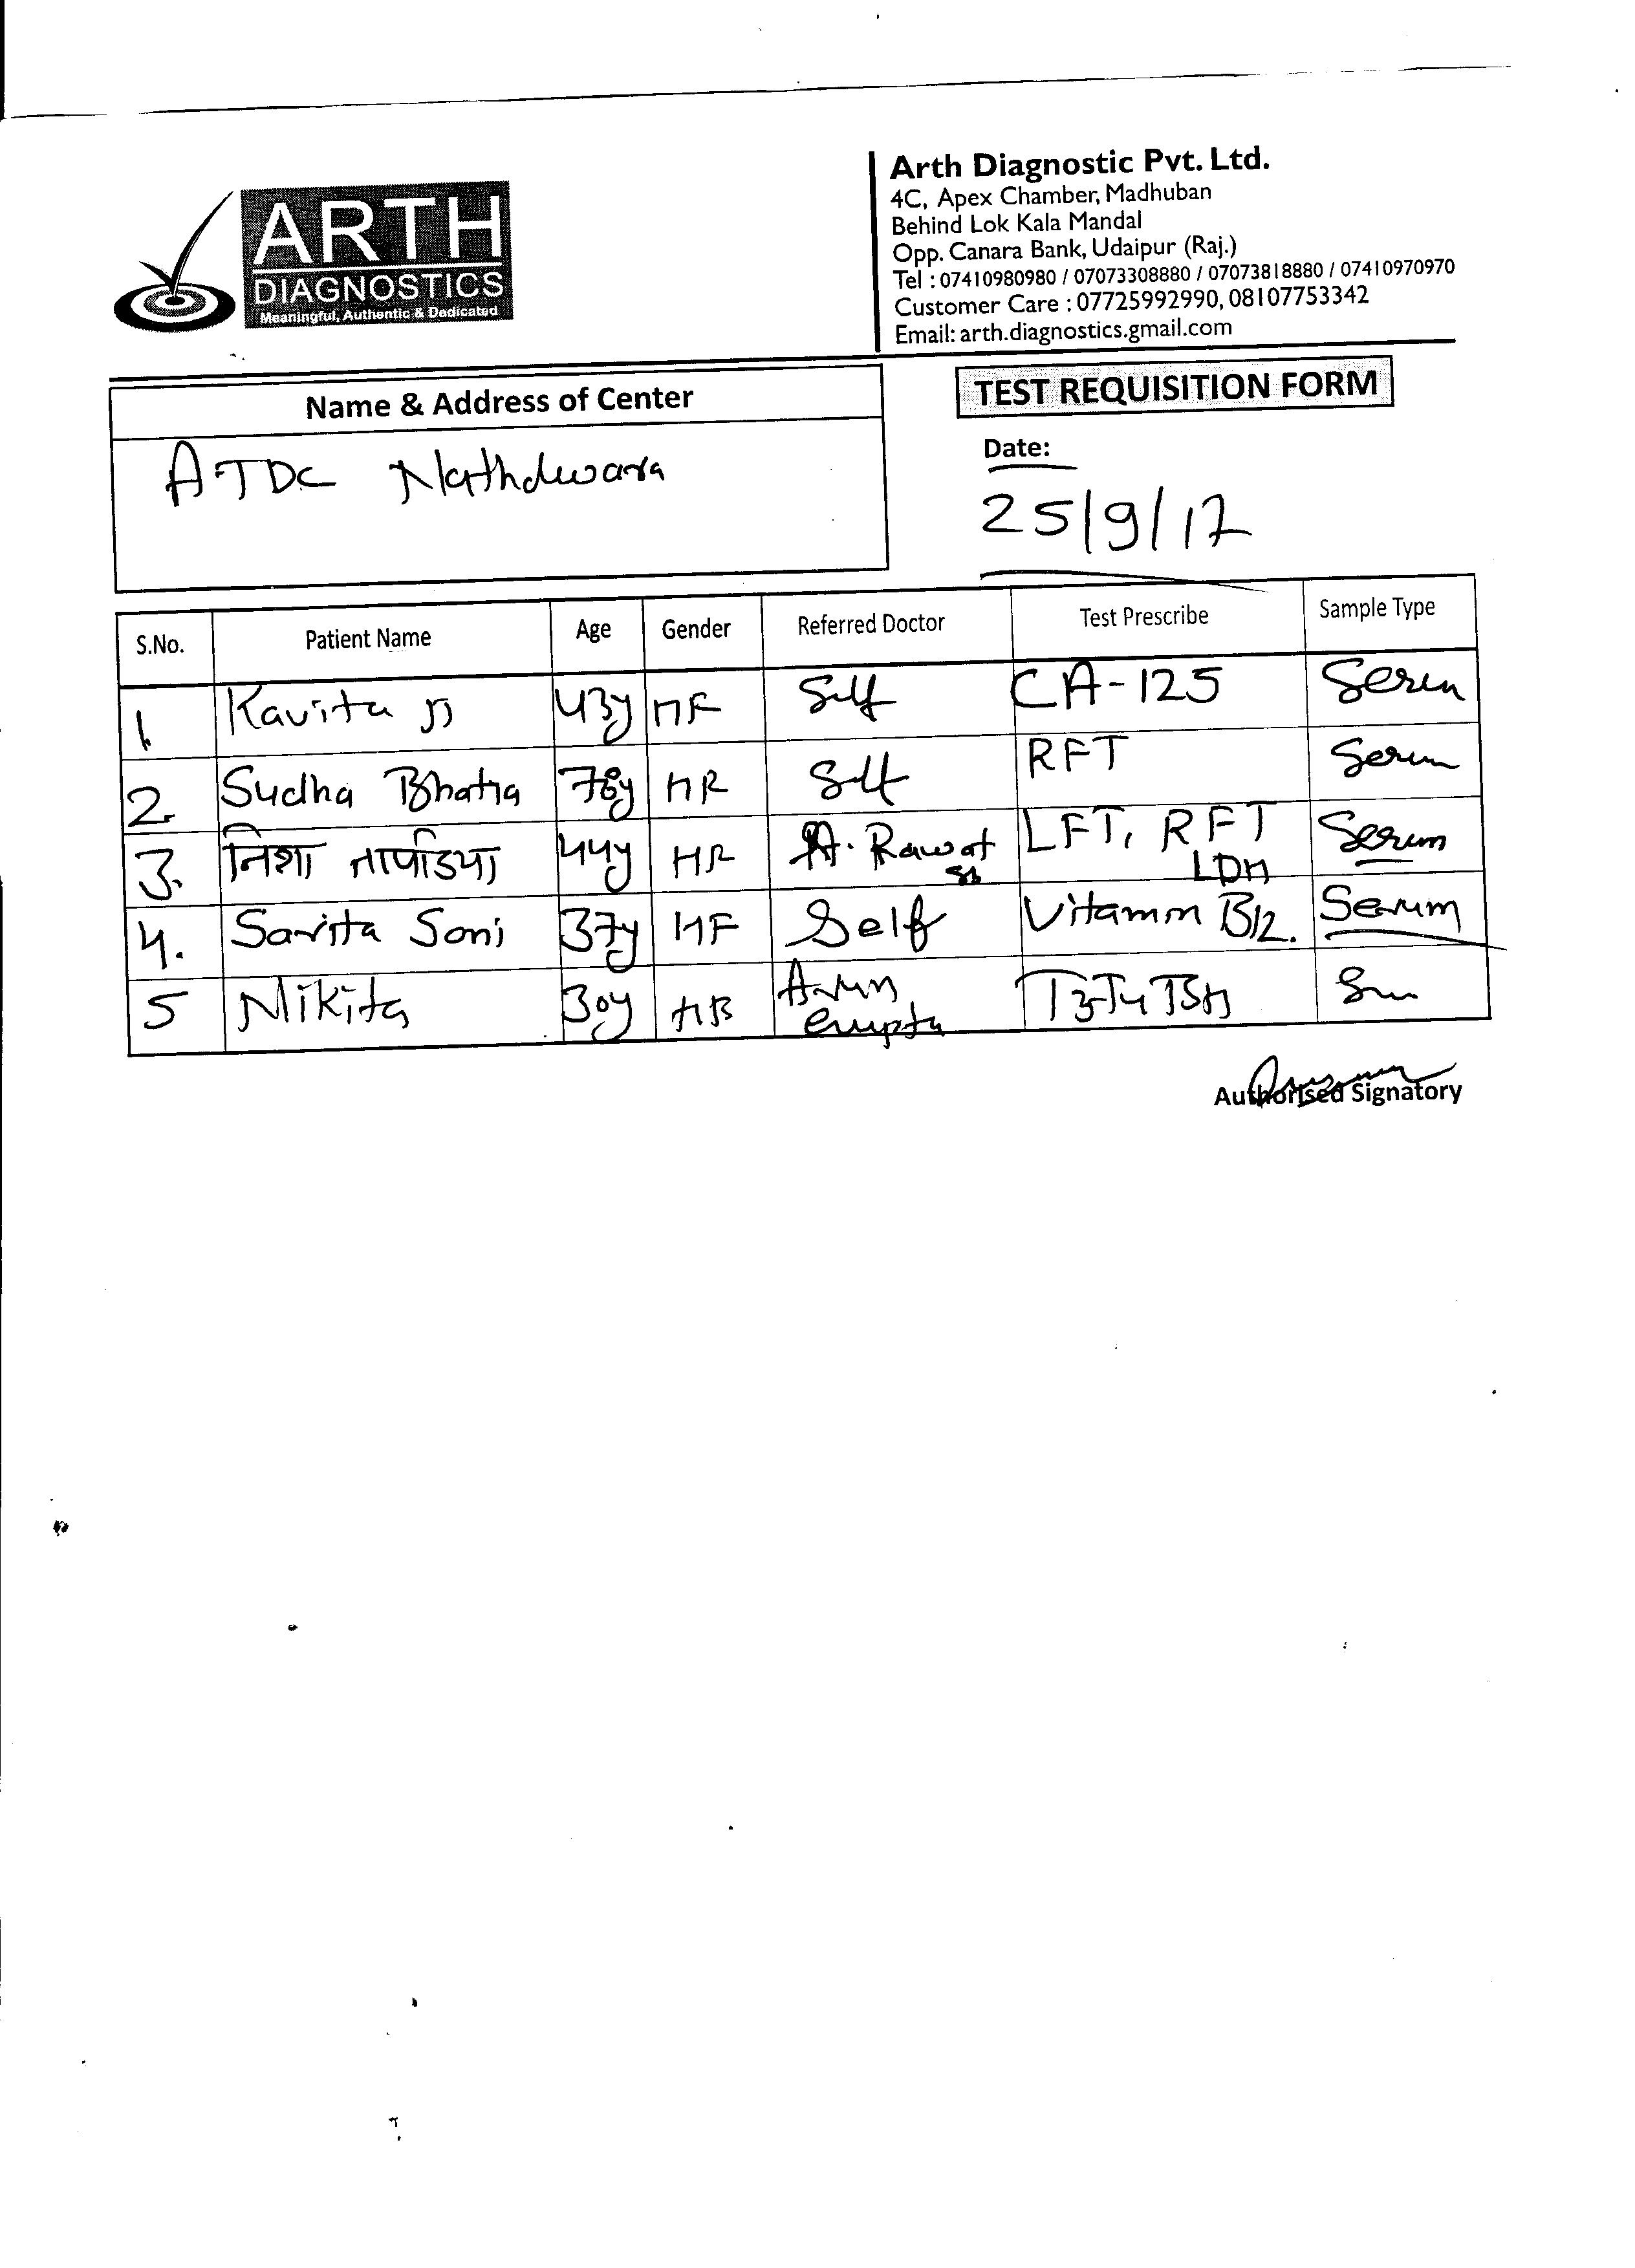 ARTH
DIAGNOSTICS
Meaningful, Authentic & Dedicated
Arth Diagnostic Pvt. Ltd.
4C, Apex Chamber, Madhuban
Behind Lok Kala Mandal
Opp. Canara Bank, Udaipur (Raj.)
Tel : 07410980980 / 07073308880 / 07073818880 / 07410970970
Customer Care : 07725992990, 08107753342
Email: arth.diagnostics.gmail.com
Name & Address of Center
TEST REQUISITION FORM
ATDC Nathdwara
Date:
25/9/17
S.No. Patient Name Age Gender Referred Doctor Test Prescribe Sample Type
1. Kavita 43y Self CA-125 Serum
2. Sudha Bhatia 78y Self RFT Serum
3. निशा 44y A. Rawat LFT, RFT Serum
4. Savita Soni 37y Self Vitamin B12. Serum
5 Nikita 30y Arun Gupta T3T4 TSH
Authorised Signatory